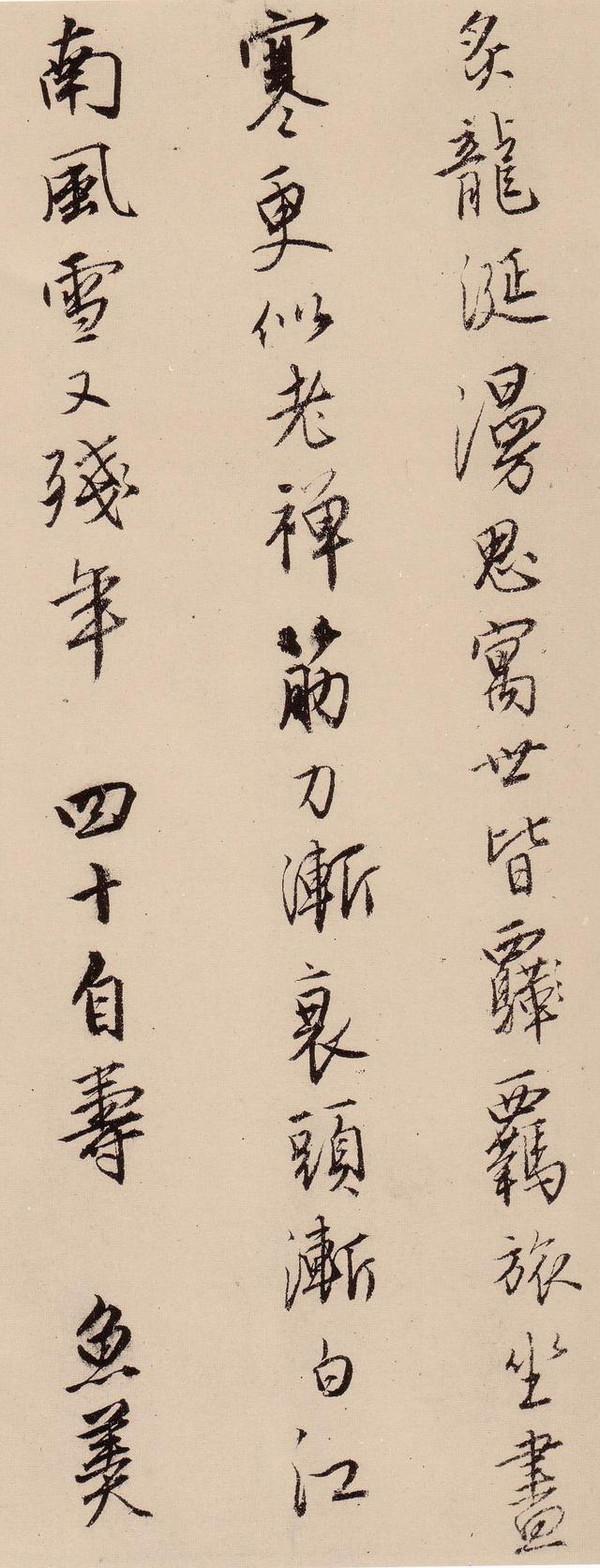 炙龍涎漫思寓世皆羈旅坐盡
寒更似老禪筋力漸衰頭漸白江
南風雪又殘年　四十自壽　魚羹